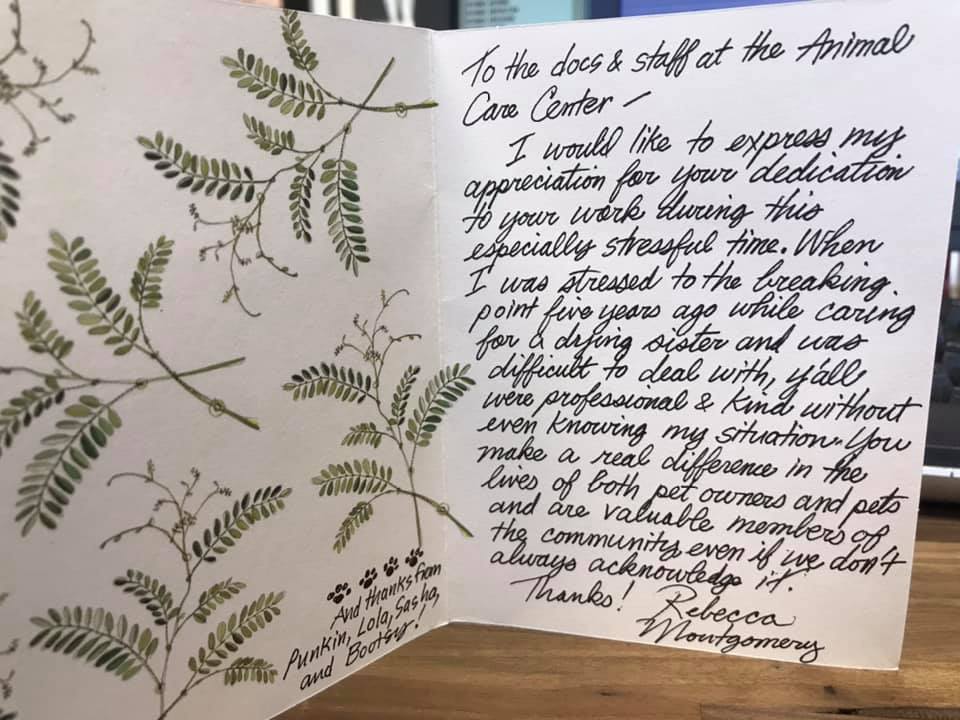 To the docs & staff at the Animal
Care Center –
I would like to express my
appreciation for your dedication
to your work during this
especially stressful time. When
I was stressed to the breaking
point five years ago while caring
for a dying sister and was
difficult to deal with, y'all
were professional & kind without
even knowing my situation. You
make a real difference in the
lives of both pet owners and pets
and are valuable members of
the community even if we don't
always acknowledge it.
Thanks! Rebecca
Montgomery
And thanks from
Punkin, Lola, Sasha,
and Bootsy!